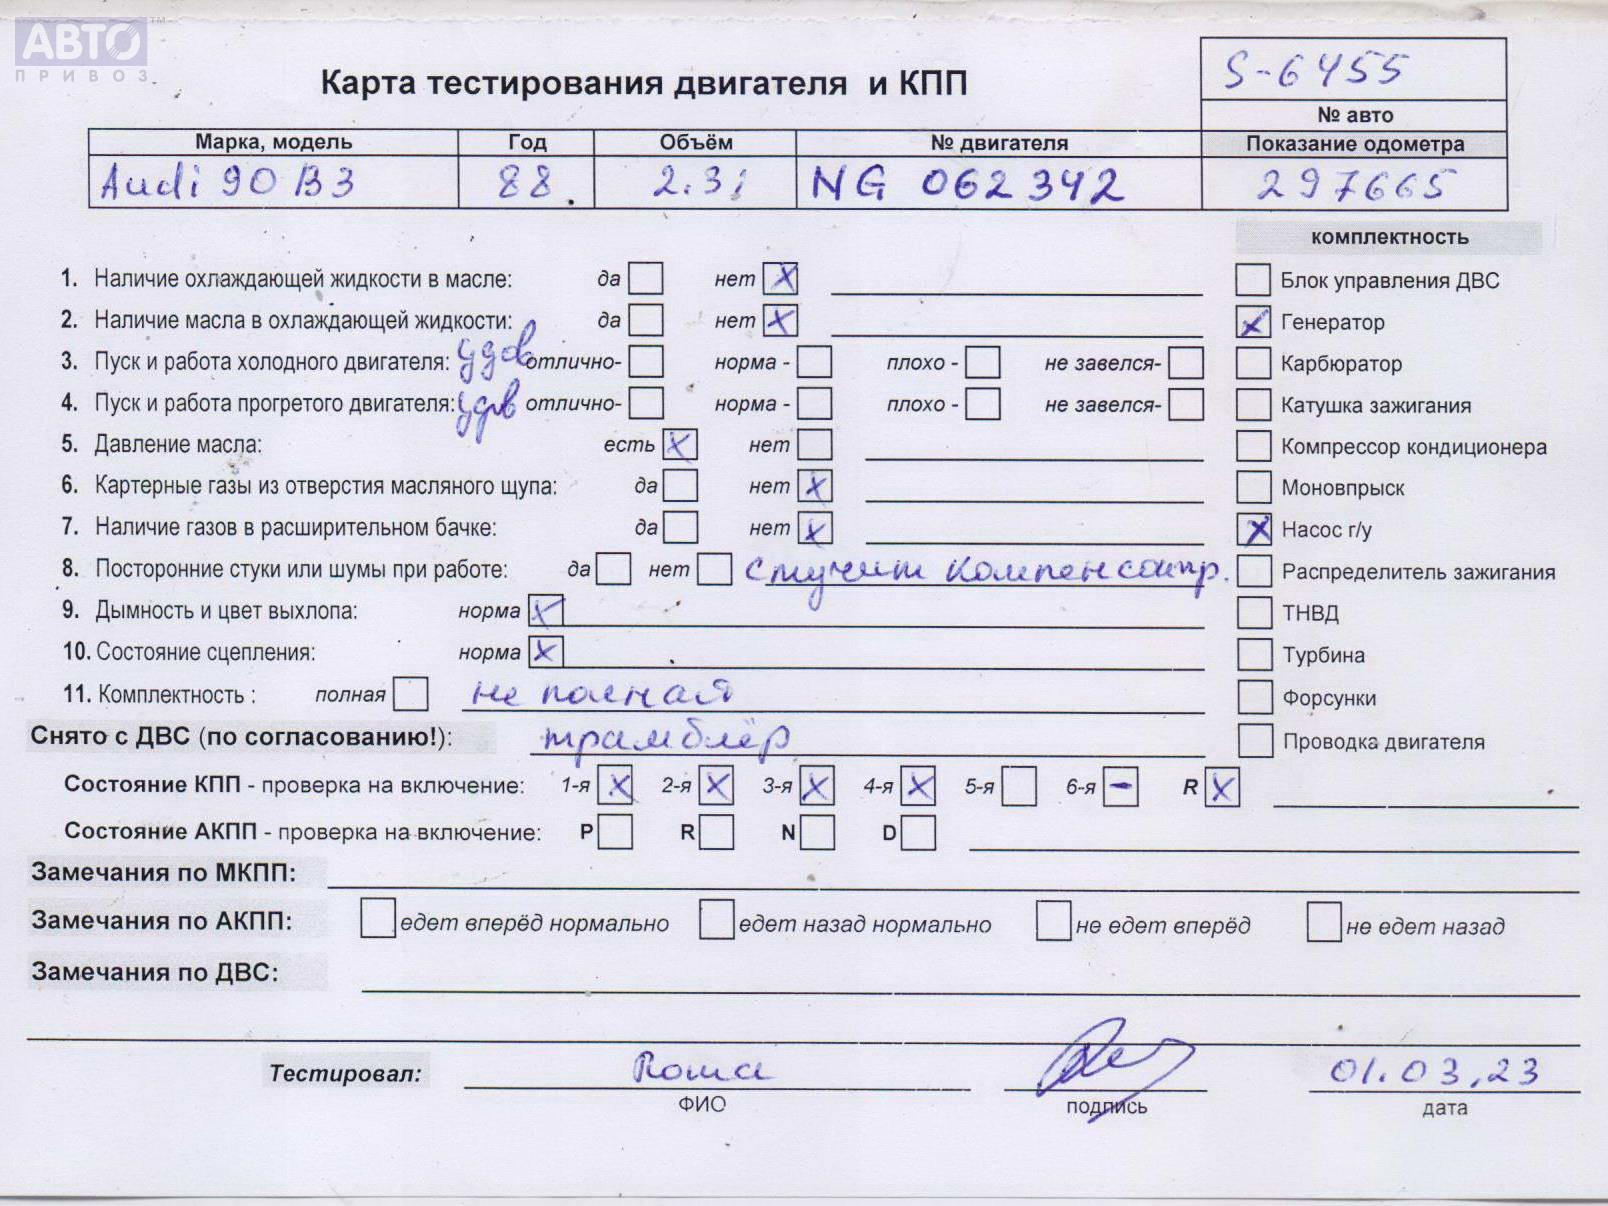 АВТО™
ПРИВОЗ
S-6455
Карта тестирования двигателя и КПП
№ авто
Марка, модель Год Объём № двигателя Показание одометра
Audi 90 B3 88. 2.3i NG 062342 297665
комплектность
1. Наличие охлаждающей жидкости в масле: да нет X Блок управления ДВС
2. Наличие масла в охлаждающей жидкости: да нет X X Генератор
3. Пуск и работа холодного двигателя: удов отлично- норма - плохо - не завелся- Карбюратор
4. Пуск и работа прогретого двигателя: удов отлично- норма - плохо - не завелся- Катушка зажигания
5. Давление масла: есть X нет Компрессор кондиционера
6. Картерные газы из отверстия масляного щупа: да нет X Моновпрыск
7. Наличие газов в расширительном бачке: да нет X X Насос г/у
8. Посторонние стуки или шумы при работе: да нет стучит компенсатр. Распределитель зажигания
9. Дымность и цвет выхлопа: норма X ТНВД
10. Состояние сцепления: норма X Турбина
11. Комплектность : полная не полная Форсунки
Снято с ДВС (по согласованию!): трамблёр Проводка двигателя
Состояние КПП - проверка на включение: 1-я X 2-я X 3-я X 4-я X 5-я 6-я - R X
Состояние АКПП - проверка на включение: P R N D
Замечания по МКПП:
Замечания по АКПП: едет вперёд нормально едет назад нормально не едет вперёд не едет назад
Замечания по ДВС:
Тестировал: Рома 01.03.23
ФИО подпись дата